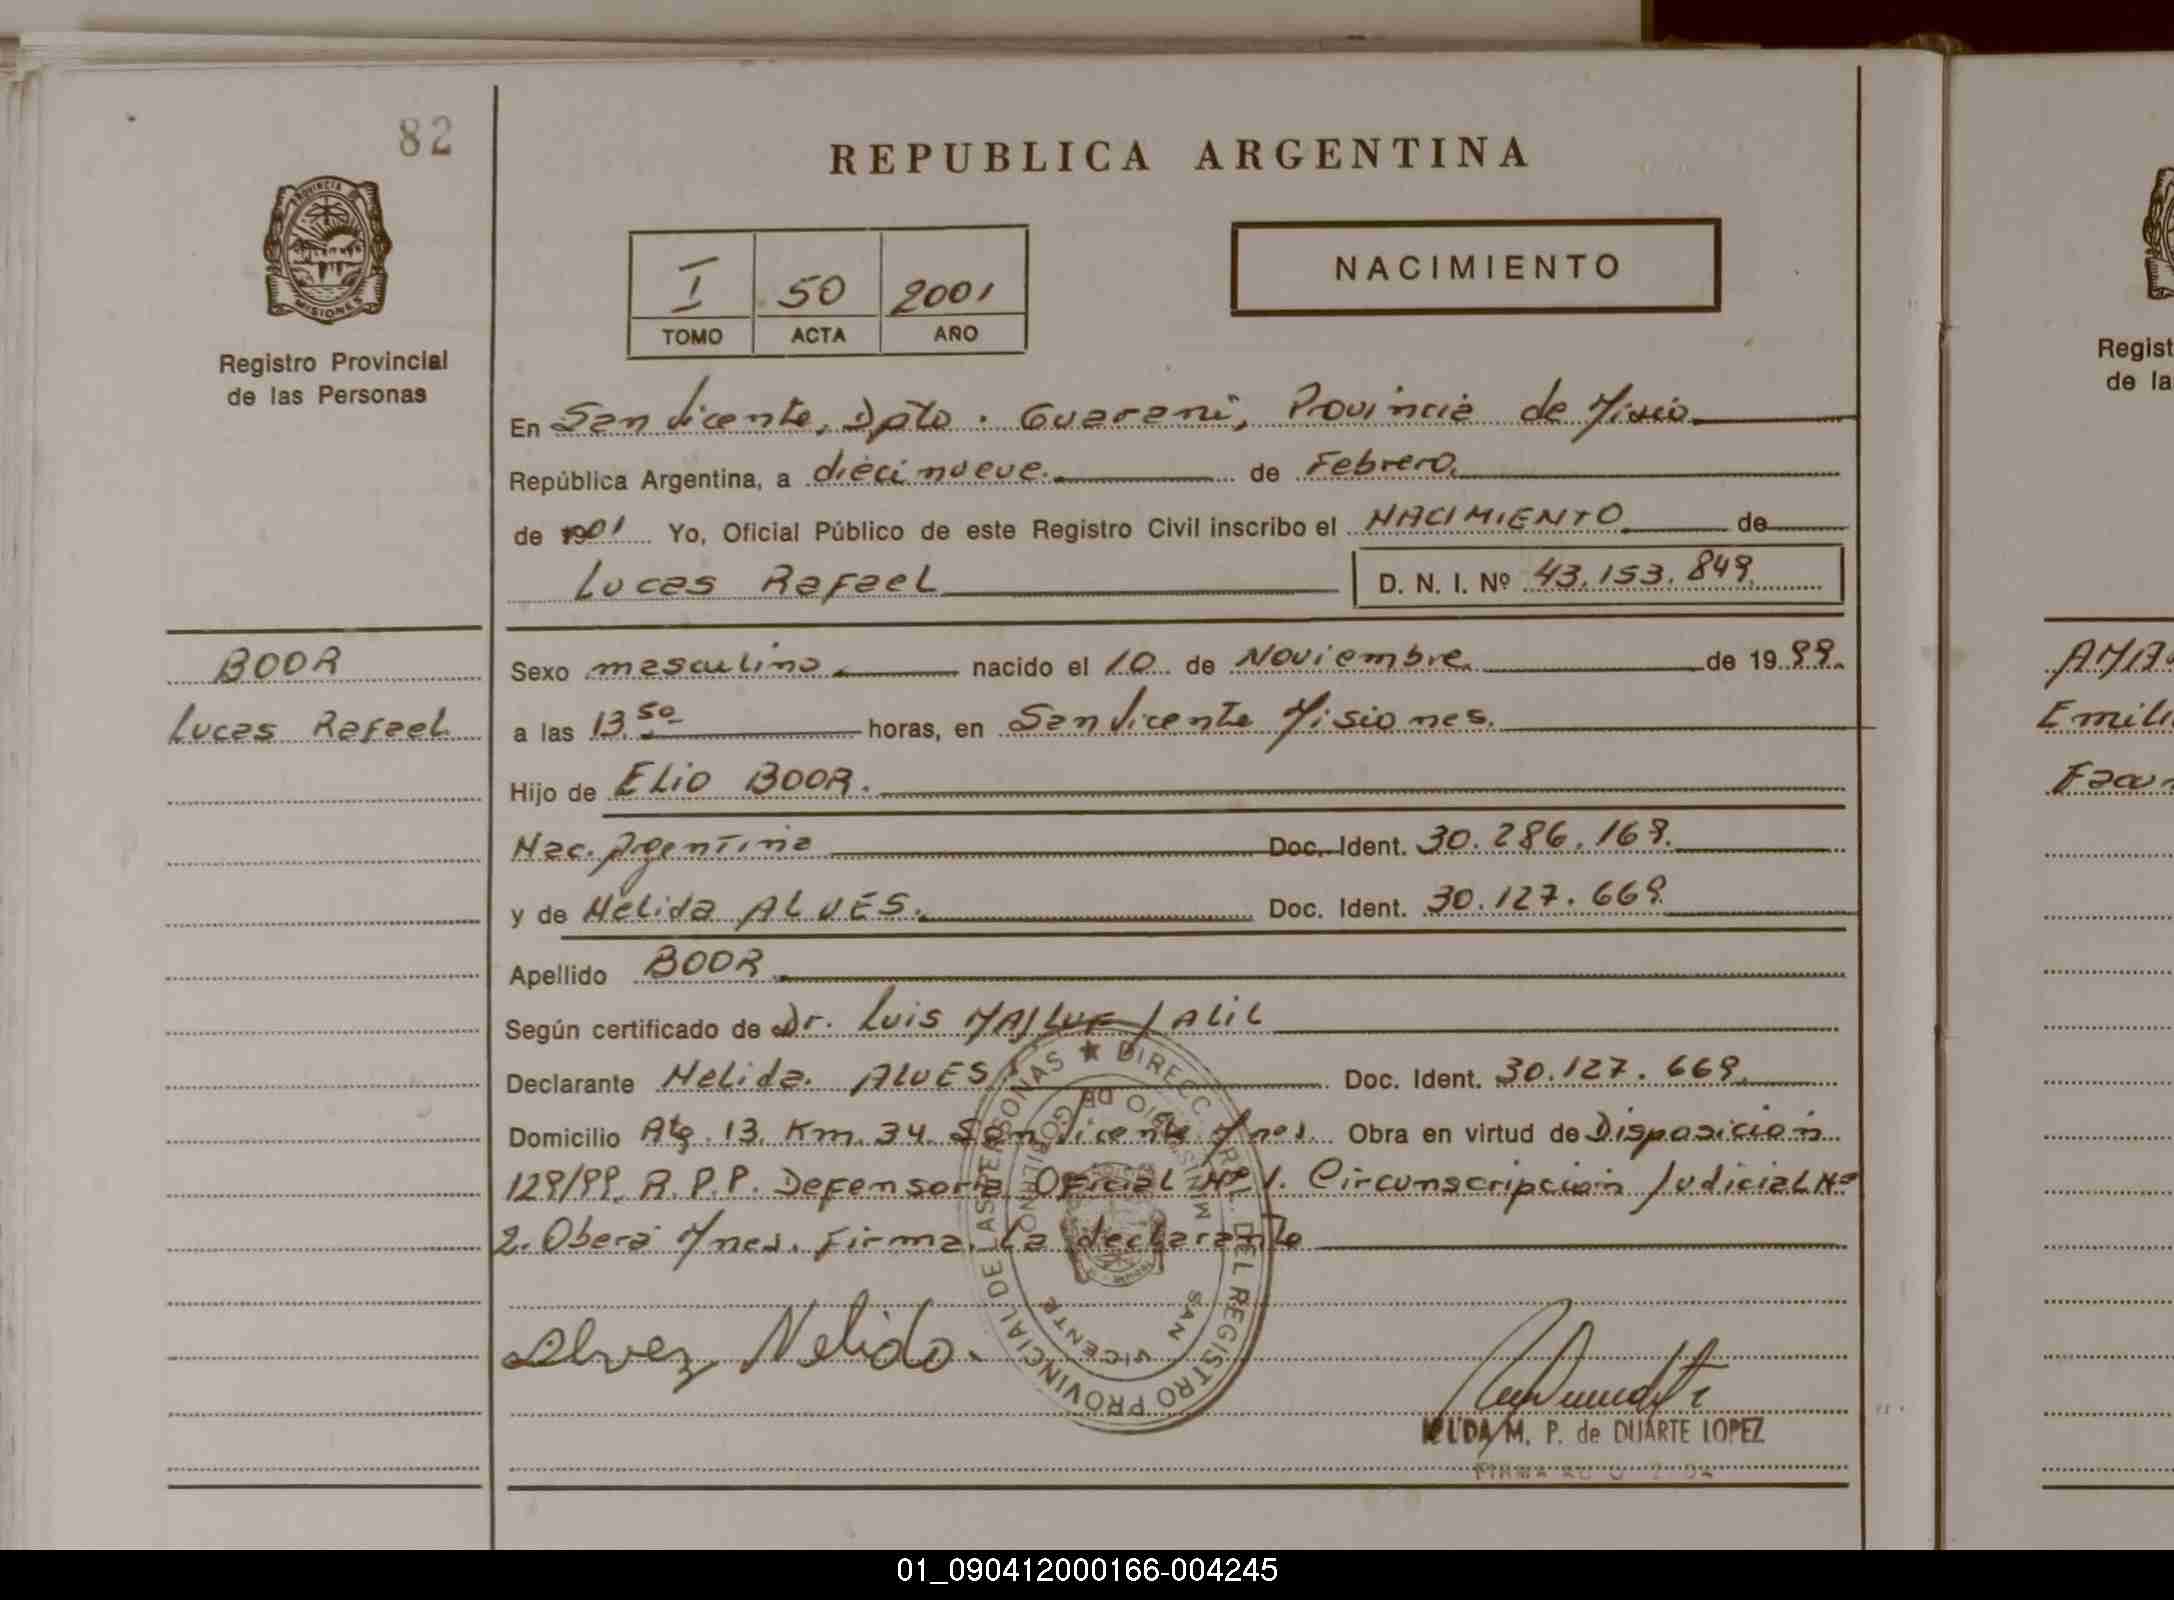 82
REPUBLICA ARGENTINA
PROVINCIA
MISIONES
Registro Provincial
de las Personas
I 50 2001
TOMO ACTA AÑO
NACIMIENTO
En San Vicente, Dpto. Guaraní, Provincia de Misio
República Argentina, a diecinueve. de Febrero.
de 1901 Yo, Oficial Público de este Registro Civil inscribo el NACIMIENTO de
Lucas Rafael D. N. I. Nº 43.153.849.
BOOR
Lucas Rafael
Sexo masculino. nacido el 10 de Noviembre. de 1999.
a las 13.50 horas, en San Vicente Misiones.
Hijo de Elio BOOR.
Nac. Argentina Doc. Ident. 30.286.169.
y de Nelida ALVES. Doc. Ident. 30.127.669.
Apellido BOOR
Según certificado de Dr. Luis Jalil
Declarante Nelida. ALVES. Doc. Ident. 30.127.669.
Domicilio 13. Km. 34. San Vicente Mnes. Obra en virtud de Disposición
129/99. R.P.P. Defensoría Oficial Nº 1. Circunscripción Judicial Nº
2. Oberá Mnes. Firma. La declarante
DIRECC. GRAL. DEL REGISTRO PROVINCIAL DE LAS PERSONAS
MINISTERIO DE GOBIERNO
SAN VICENTE
Alvez Nelida.
M. P. de DUARTE LOPEZ
Regist
de la
Emili
Facun
01_090412000166-004245